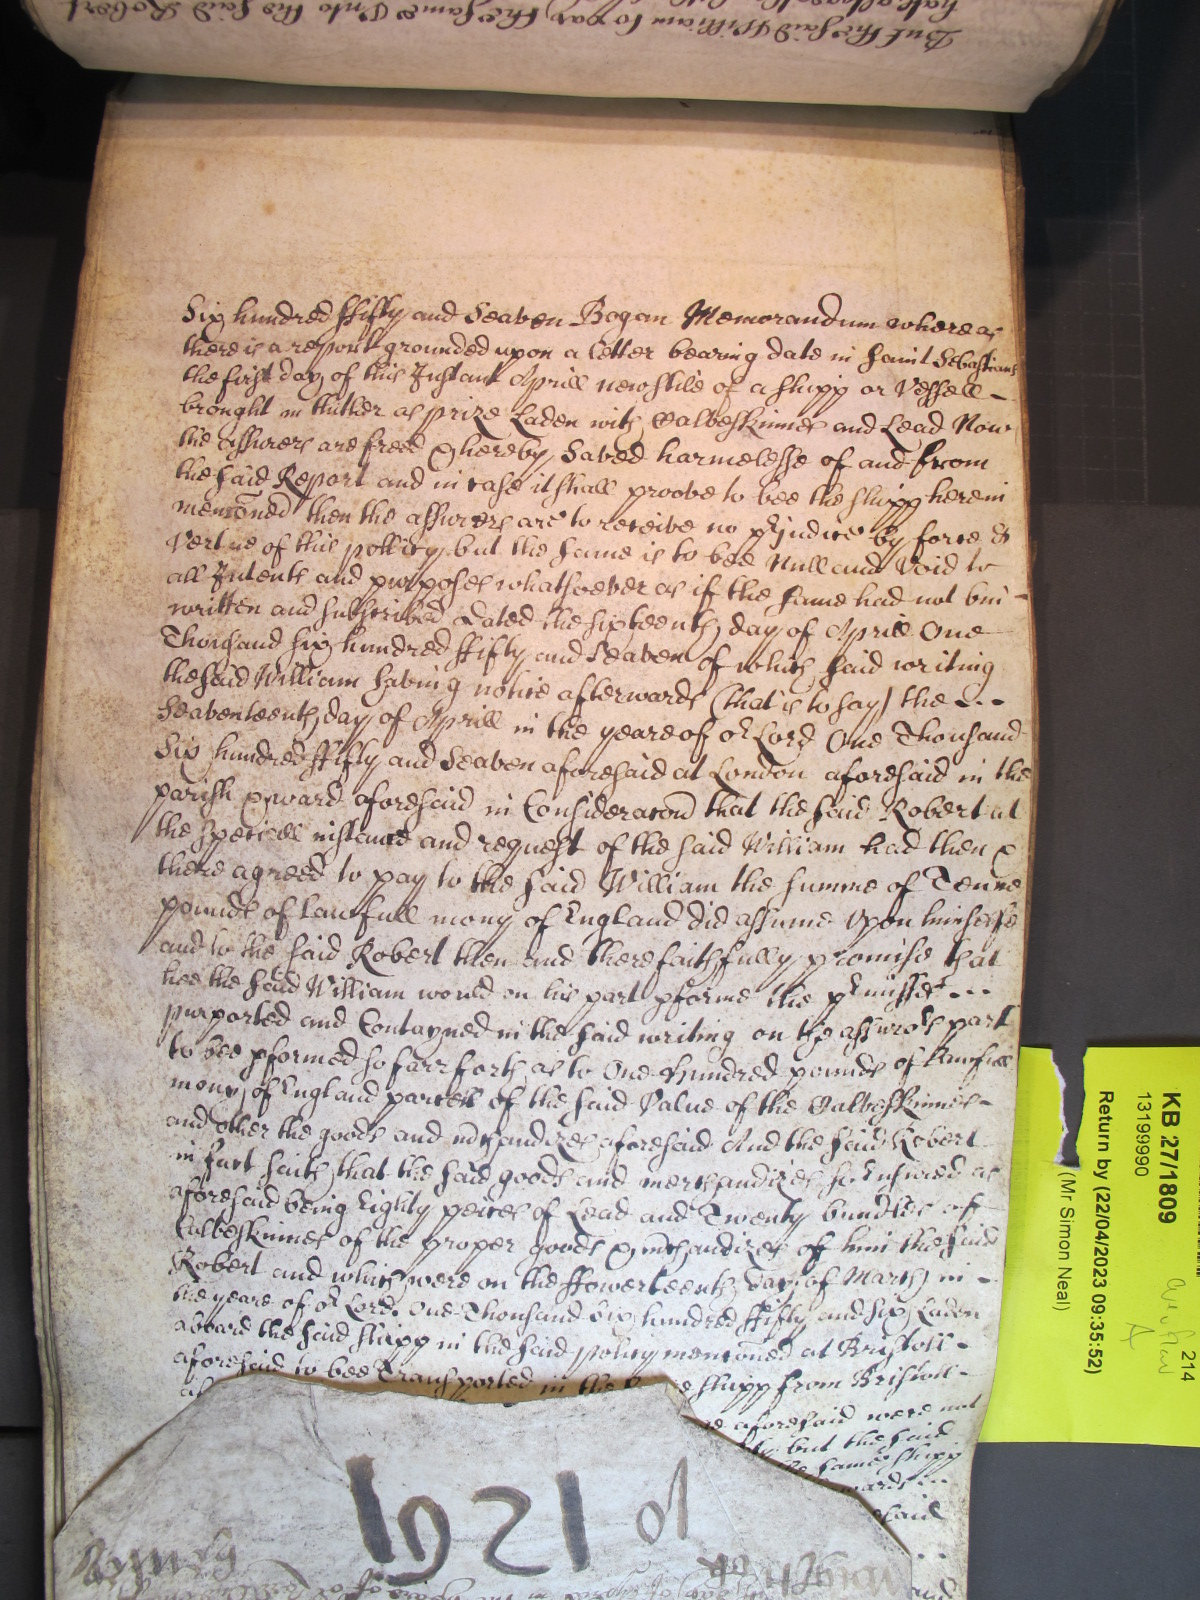 But the said William to pay the same Unto the said Robert
Six hundred ffifty and Seaven Began Memorandum whereas
there is a report grounded upon a letter bearing date in Saint Sebastians
the first day of this Instant Aprill newstile of a shipp or Vessell
brought in thither as prize Laden with Calveskinnes and Lead Now
the assurers are freed & hereby Saved harmelesse of and from
the said Report and in case it shall proove to bee the shipp herein
menconed then the assurers are to receive no prjudice by force &
Vertue of this pollicy but the same is to bee Null and Void to
all Intents and purposes whatsoever as if the same had not bin
written and subscribed Dated the sixteenth day of Aprill One
Thousand six hundred ffifty and Seaven of which said writing
the said William having notice afterwards (that is to say) the
Seaventeenth day of Aprill in the yeare of or Lord One Thousand
Six hundred ffifty and Seaven aforesaid at London aforesaid in the
parish & ward aforesaid in Consideracon that the said Robert at
the speciall instance and request of the said William had then &
there agreed to pay to the said William the summe of Tenne
pounds of lawfull mony of England did assume Upon himselfe
and to the said Robert then and there faithfully promise that
hee the said William would on his part pforme the prmisses
purported and Contayned in the said writing on the assurors part
to bee pformed so farr forth as to One Hundred pounds of Lawfull
mony of England parcell of the said Value of the Calveskinnes
and other the goods and mrchandizes aforesaid And the said Robert
in fact saith that the said goods and merchandizes so Insured as
aforesaid being Eighty peices of Lead and Twenty bundles of
Calveskinnes of the proper goods & mrchandizes of him the said
Robert and which were on the ffowerteenth day of March in
the yeare of or Lord One Thousand Six hundred ffifty and six Laden
aboard the said shipp in the said policy menconed at Bristoll
aforesaid to bee Transported in the same shipp from Bristoll
aforesaid were not
but the said
the same shipp
wards
said
1921
KB 27/1809
13199990
Return by (22/04/2023 09:35:52)
(Mr Simon Neal)
214
A